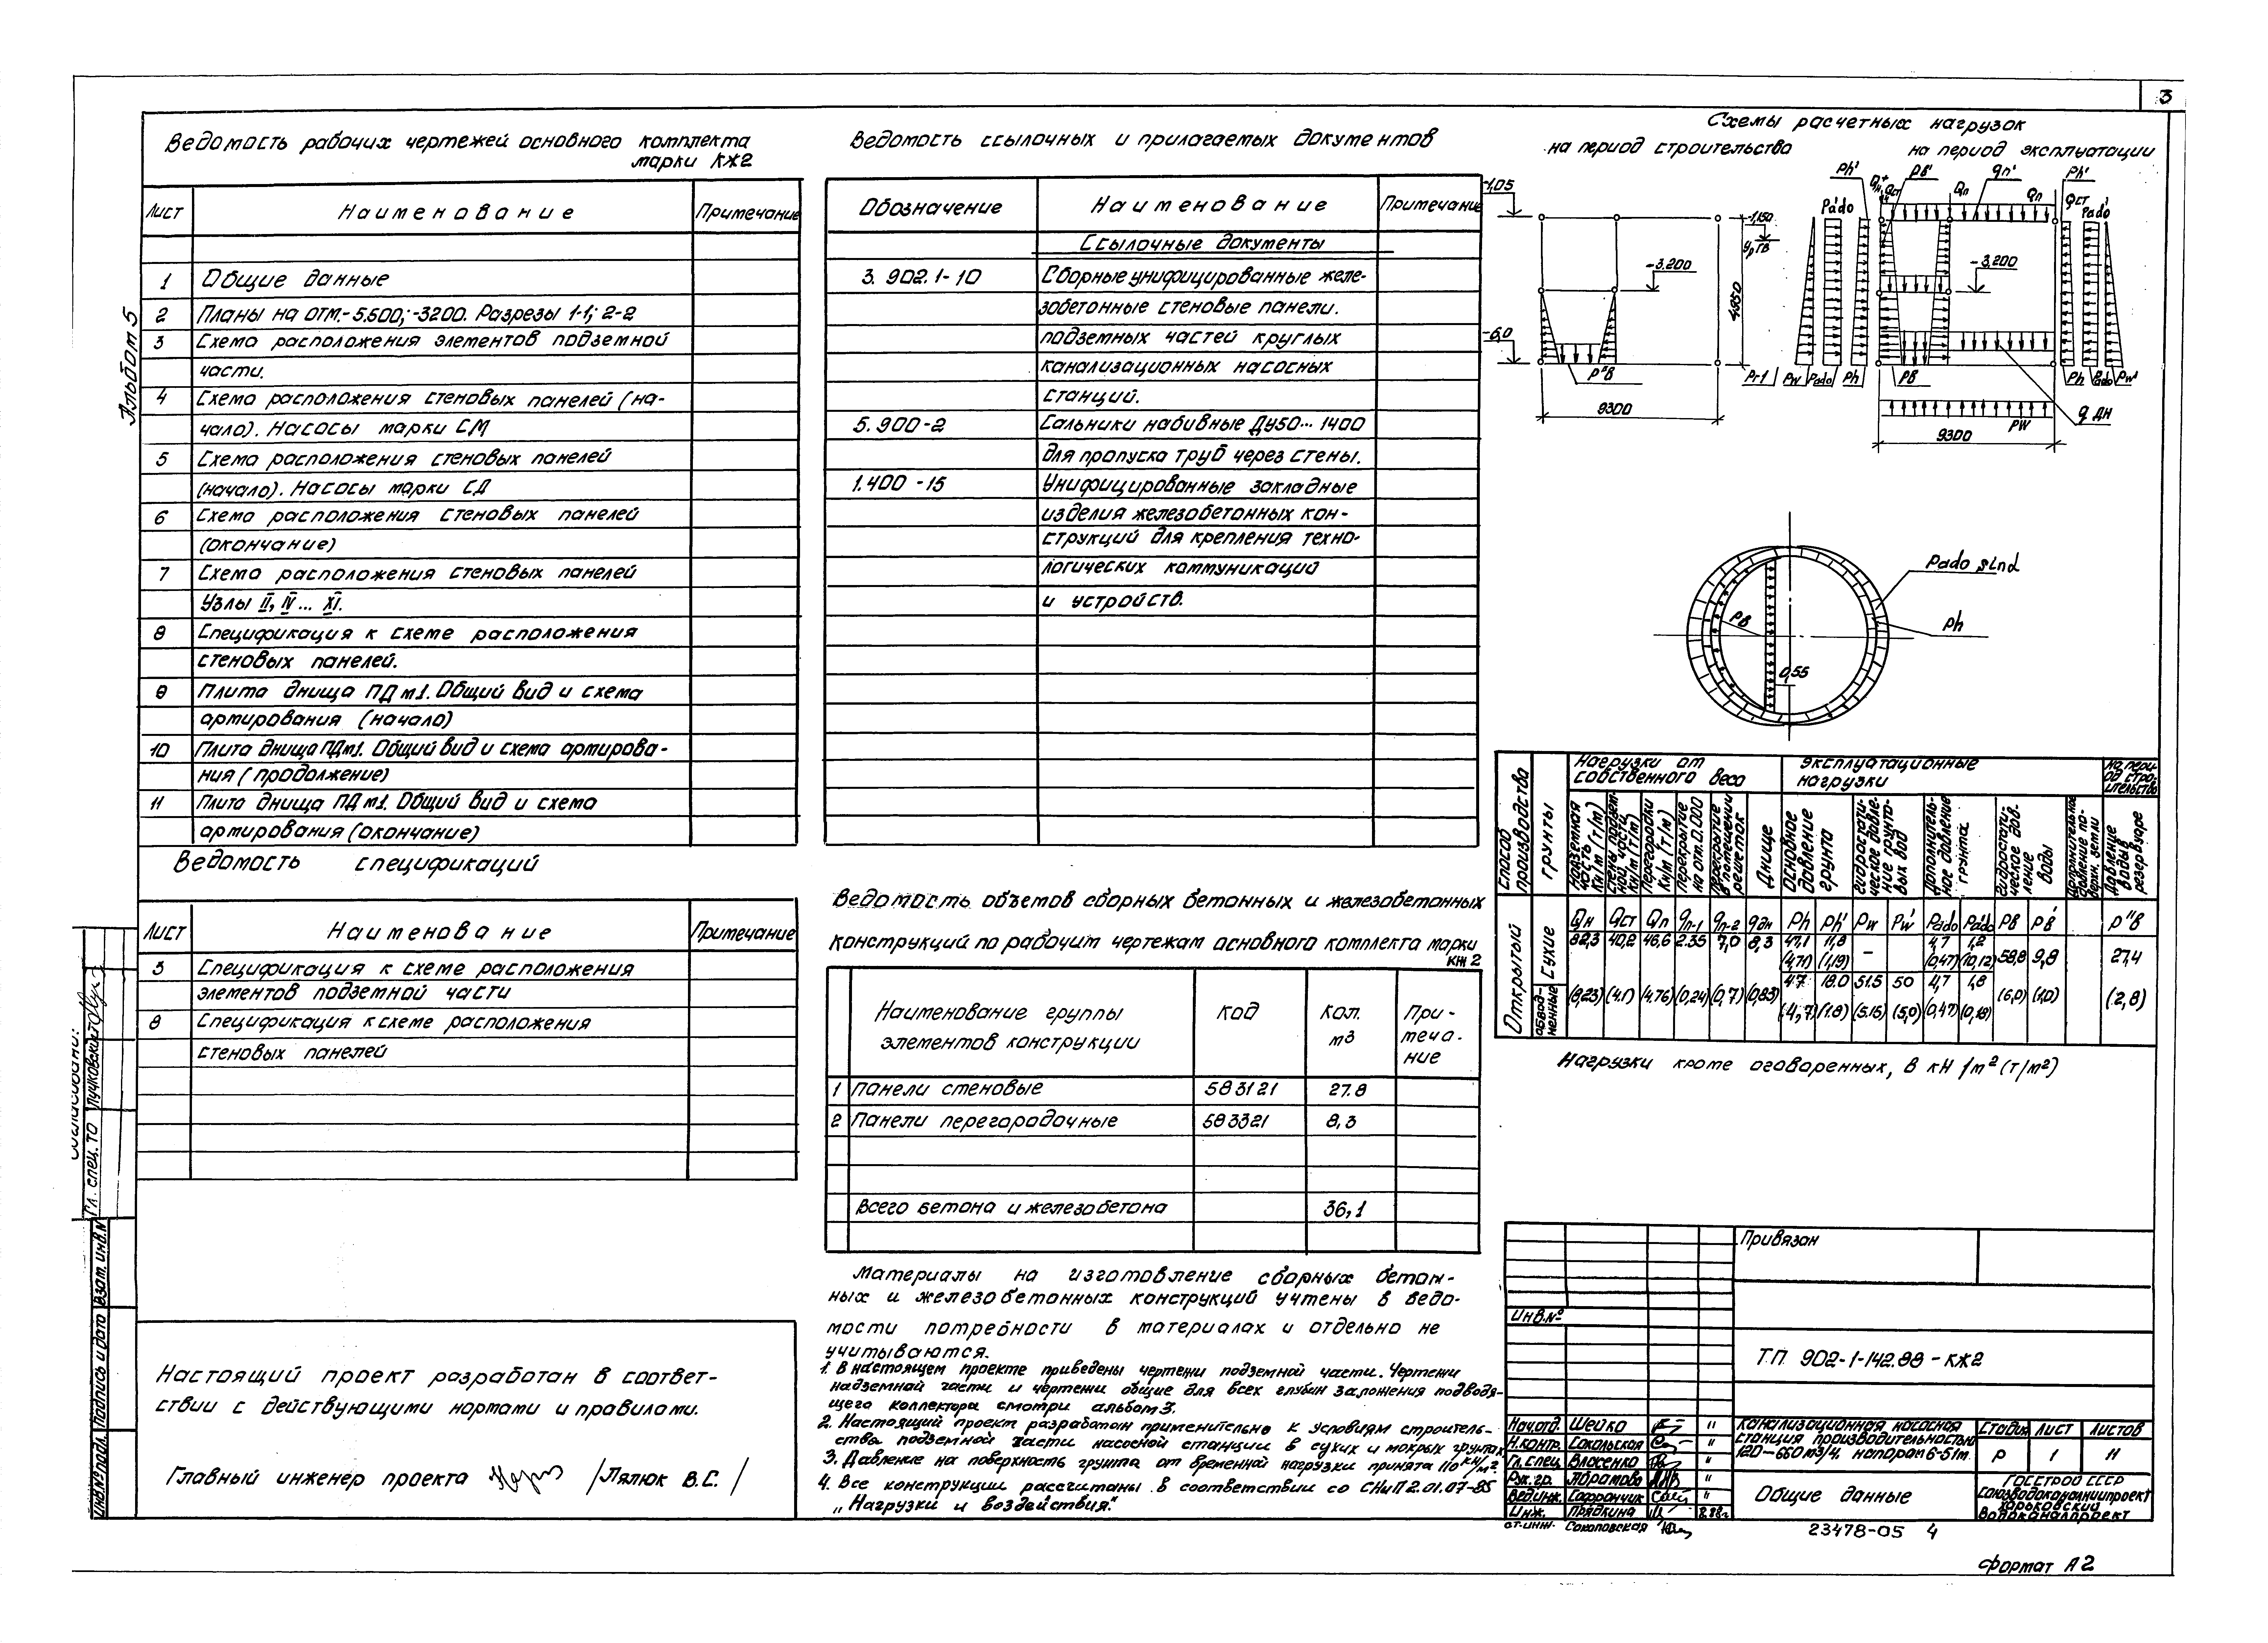 3
Альбом 5
Ведомость рабочих чертежей основного комплекта
марки КЖ2
Лист Наименование Примечание
1 Общие данные
2 Планы на отм.-5.600; -3200. Разрезы 1-1; 2-2
3 Схема расположения элементов подземной
части.
4 Схема расположения стеновых панелей (на-
чало). Насосы марки СМ
5 Схема расположения стеновых панелей
(начало). Насосы марки СД
6 Схема расположения стеновых панелей
(окончание)
7 Схема расположения стеновых панелей
Узлы II, IV... XI.
8 Спецификация к схеме расположения
стеновых панелей.
9 Плита днища ПДм1. Общий вид и схема
армирования (начало)
10 Плита днища ПДм1. Общий вид и схема армирова-
ния (продолжение)
11 Плита днища ПДм1. Общий вид и схема
армирования (окончание)
Ведомость спецификаций
Лист Наименование Примечание
3 Спецификация к схеме расположения
элементов подземной части
8 Спецификация к схеме расположения
стеновых панелей
Настоящий проект разработан в соответ-
ствии с действующими нормами и правилами.
Главный инженер проекта /Лялюк В.С./
Ведомость ссылочных и прилагаемых документов
Обозначение Наименование Примечание
Ссылочные документы
3.902.1-10 Сборные унифицированные желе-
зобетонные стеновые панели.
подземных частей круглых
канализационных насосных
станций.
5.900-2 Сальники набивные Ду50... 1400
для пропуска труб через стены.
1.400-15 Унифицированные закладные
изделия железобетонных кон-
струкций для крепления техно-
логических коммуникаций
и устройств.
Ведомость объемов сборных бетонных и железобетонных
конструкций по рабочим чертежам основного комплекта марки
КЖ2
Наименование группы элементов конструкции Код Кол. м3 При-меча-ние
1 Панели стеновые 583121 27.8
2 Панели перегородочные 583321 8,3
Всего бетона и железобетона 36,1
Материалы на изготовление сборных бетон-
ных и железобетонных конструкций учтены в ведо-
мости потребности в материалах и отдельно не
учитываются.
1. В настоящем проекте приведены чертежи подземной части. Чертежи
надземной части и чертежи общие для всех глубин заложения подводя-
щего коллектора смотри альбом 3.
2. Настоящий проект разработан применительно к условиям строитель-
ства подземной части насосной станции в сухих и мокрых грунтах
3. Давление на поверхность грунта от временной нагрузки принята 110 кН/м².
4. Все конструкции рассчитаны в соответствии со СНиП 2.01.07-85
„Нагрузки и воздействия".
Схемы расчетных нагрузок
на период строительства на период эксплуатации
-1,05
-1,150
Ур.ГВ
-3.200
4850
-6,0
P"в
9300
Рг1
Ph' Qн+Qст Pв' qп' Qп Qп Ph'
Pádo Qст Pádo
-3,200
Pw Pado Ph Pв Ph Pado Pw'
q дн
Pw
9300
Pado sinα
Pв
Ph
0,55
Способ производства
Грунты
Нагрузки от
собственного веса
Эксплуатационные
нагрузки
На пери-
од стро-
ительства
Надземная часть Кн/м (т/м)
Стены подзем-ной части Кн/м (т/м)
Перегородки Кн/м (т/м)
Перекрытие на отм. 0.000
Перекрытие в помещении решеток
Днище
Основное давление грунта
Гидростати-ческое давле-ние грунто-вых вод
Дополнитель-ное давление грунта
Гидростати-ческое дав-ление воды
Давление воды в резервуаре
Qн Qст Qп qп-1 qп-2 qдн Ph Ph' Pw Pw' Pado Pádo Pв P'в P"в
Открытый
Сухие
82,3 40,2 46,6 2.35 7,0 8,3 47,1 11,8 – 4,7 1,2 58,8 9,8 27,4
(4,71) (1,19) (0,47) (0,12)
обвод-
ненные
(8,23) (4.1) (4.76) (0,24) (0,7) (0,83) 47 18.0 51.5 50 4,7 1,8 (6,0) (1,0) (2,8)
(4,7) (1.8) (5.15) (5,0) (0,47) (0,18)
Нагрузки кроме оговоренных, в кН/м² (т/м²)
Привязан
Инв.№
Т.П. 902-1-142.88 - КЖ2
Нач.отд. Шейко "
Н.контр. Сокольская "
Гл.спец. Власенко "
Рук.гр. Абрамова "
Вед.инж. Сафрончик "
Инж. Прядкина 8.88г.
Ст.инж. Соколовская
Канализационная насосная
станция производительностью
120–660 м3/ч. напором 6-51м.
Стадия Лист Листов
Р 1 11
Общие данные
Госстрой СССР
Союзводоканалниипроект
Харьковский
Водоканалпроект
23478-05 4
Формат А2
Согласовано:
Гл. спец. ТО Пучковский
Взам. инв.№
Подпись и дата
Инв.№ подл.